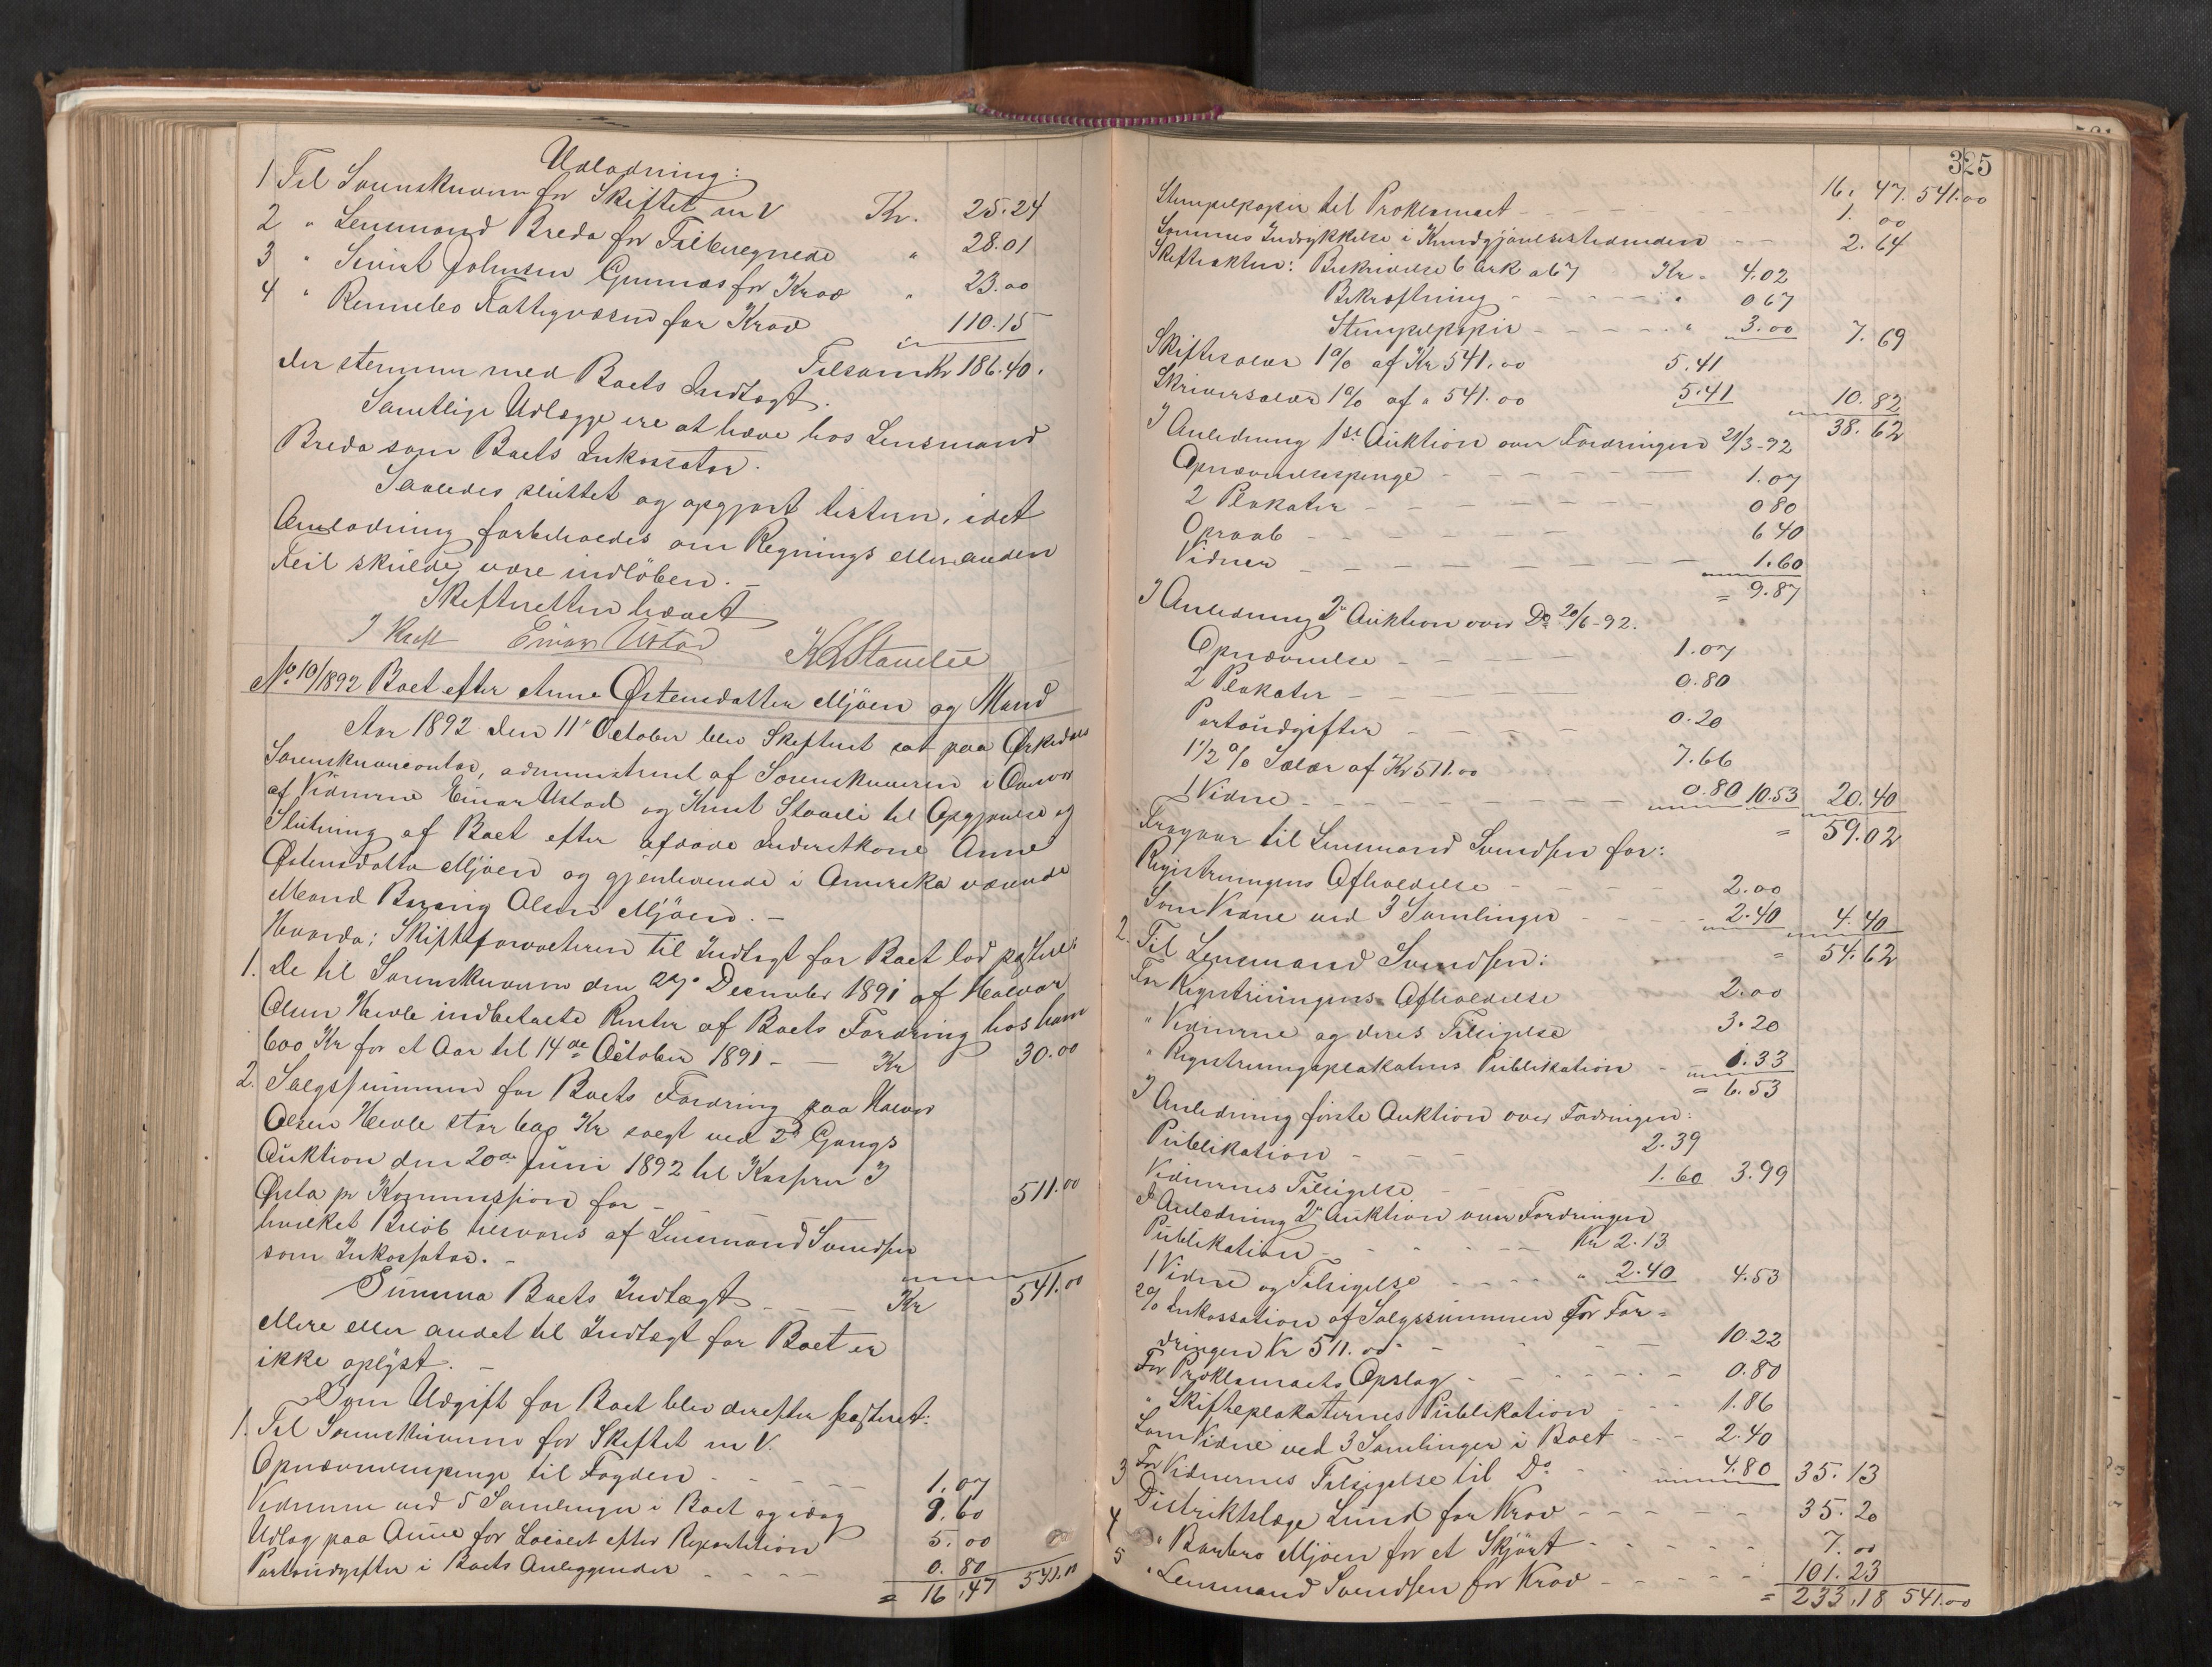 Udlodning:
1 Til Sorenskriveren for Skiftet m V Kr. 25.24
2 " Lensmand Breda for Tilberegnede " 28.01
3 " Sivert Johnsen Gunnes for Krav " 23.00
4 " Rennebo Fattigvæsen for Krav 110.15
Tilsam Kr 186.40.
der stemmer med Boets Indtægt.
Samtlige Udlægge ere at hæve hos Lensmand
Breda som Boets Inkassator.
Saaledes sluttet og opgjort Listen, idet
Anledning forbeholdes om Regnings eller anden
Feil skulde være indløben. -
Skifteretten hævet
I Kraft Einar Ustad K Staveli
No 10/1892 Boet efter Anne Østensdatter Mjöen og Mand
Aar 1892 den 11' October blev Skifteret sat paa Orkedals
Sorenskrivercontor, administreret af Sorenskriveren i Overvær
af Vidnerne Einar Ustad og Knut Staveli til Opgjørelse og
Slutning af Boet efter afdøde Inderstkone Anne
Østensdatter Mjøen og gjenlevende i Amerika værende
Mand Olsen Mjöen. -
Hvorda: Skifteforvalteren til Indtægt for Boet lod postere:
1. De til Sorenskriveren den 27' December 1891 af Halvor
Olsen Hevle indbetalte Renter af Boets Fordring hos ham
600 Kr for et Aar til 14de October 1891 - - Kr 30.00
2. Salgssummen for Boets Fordring paa Halvor
Olsen Hevle stor 600 Kr solgt ved 2d Gangs
Auktion den 20de Juni 1892 til Kasper I
Ørsta pr Kommission for - 511.00
hvilket Beløb tilsvares af Lensmand Svendsen
som Inkassator. -
Summa Boets Indtægt - - - Kr 541.00
Mere eller andet til Indtægt for Boet er
ikke oplyst. -
Som Udgift for Boet blev derefter posteret:
1. Til Sorenskriveren for Skiftet m V.
Opnævnelsespenge til Fogden - - - 1.07
Vidnerne ved 5 Samlinger i Boet og idag 9.60
Udlæg paa Anne for Localet efter Repartition 5.00
Portoudgifter i Boets Anliggender - - - - 0.80
= 16,47 541.00
325
16. 47. 541.00
Stempelpapir til Proklamaet - - - 1. 00
Sammes Indrykkelse i Kundgjørelsestidenden - - 2.64
Skifteakten: Beskrivelse 6 Ark a 67 Kr. 4.02
Bekræftning - - - - - " 0 67
Stempelpapir - - - - - " 3.00 7.69
Skiftesalær 1% af Kr 541.00 5.41
Skriversalær 1% af " 541.00 5.41 10.82
38.62
I Anledning 1ste Auktion over Fordringen 21/3-92
Opnævnelsespenge - - - - 1.07
2 Plakater - - - - - 0 80
Opraab - - - - - 6 40
Vidner - - - - - 1.60
= 9.87
I Anledning 2' Auktion over Do 20/6-92.
Opnævnelse - - - 1.07
2 Plakater - - - 0.80
Portoudgifter - - - 0.20
1 1/2 % Salær af Kr 511.00 7.66
1 Vidne - - - - - 0.80 10.53 20.40
= 59.02
Fragaar til Lensmand Svendsen for:
Registreringens Afholdelse - - - 2.00
Som Vidne ved 3 Samlinger - - - - 2.40 4.40
= 54.62
2. Til Lensmand Svendsen:
For Registreringens Afholdelse 2.00
" Vidnerne og deres Tilsigelse 3.20
" Registreringsplakatens Publikation - 1.33
= 6.53
I Anledning første Auktion over Fordringen:
Publikation - - - 2.39
Vidnernes Tilsigelse - - 1.60 3.99
I Anledning 2' Auktion over Fordringen
Publikation - - - - - Kr 2.13
1 Vidne og Tilsigelse - - - - " 2.40 4.53
2% Inkassation af Salgssummen for For-
dringen Kr 511.00 - - - - 10.22
For Proklamaets Opslag - - - - - 0.80
" Skifteplakaternes Publikation - - - 1.86
Som Vidne ved 3 Samlinger i Boet - - - 2.40
For Vidnernes Tilsigelse til Do - - 4.80 35.13
3 Distriktslæge Lund for Krav - - - - - 35.20
4 " Barbro Mjøen for et Skjørt - - - - - 7.00
5 " Lensmand Svendsen for Krav - - - - - 101.23
= 233,18 541.00